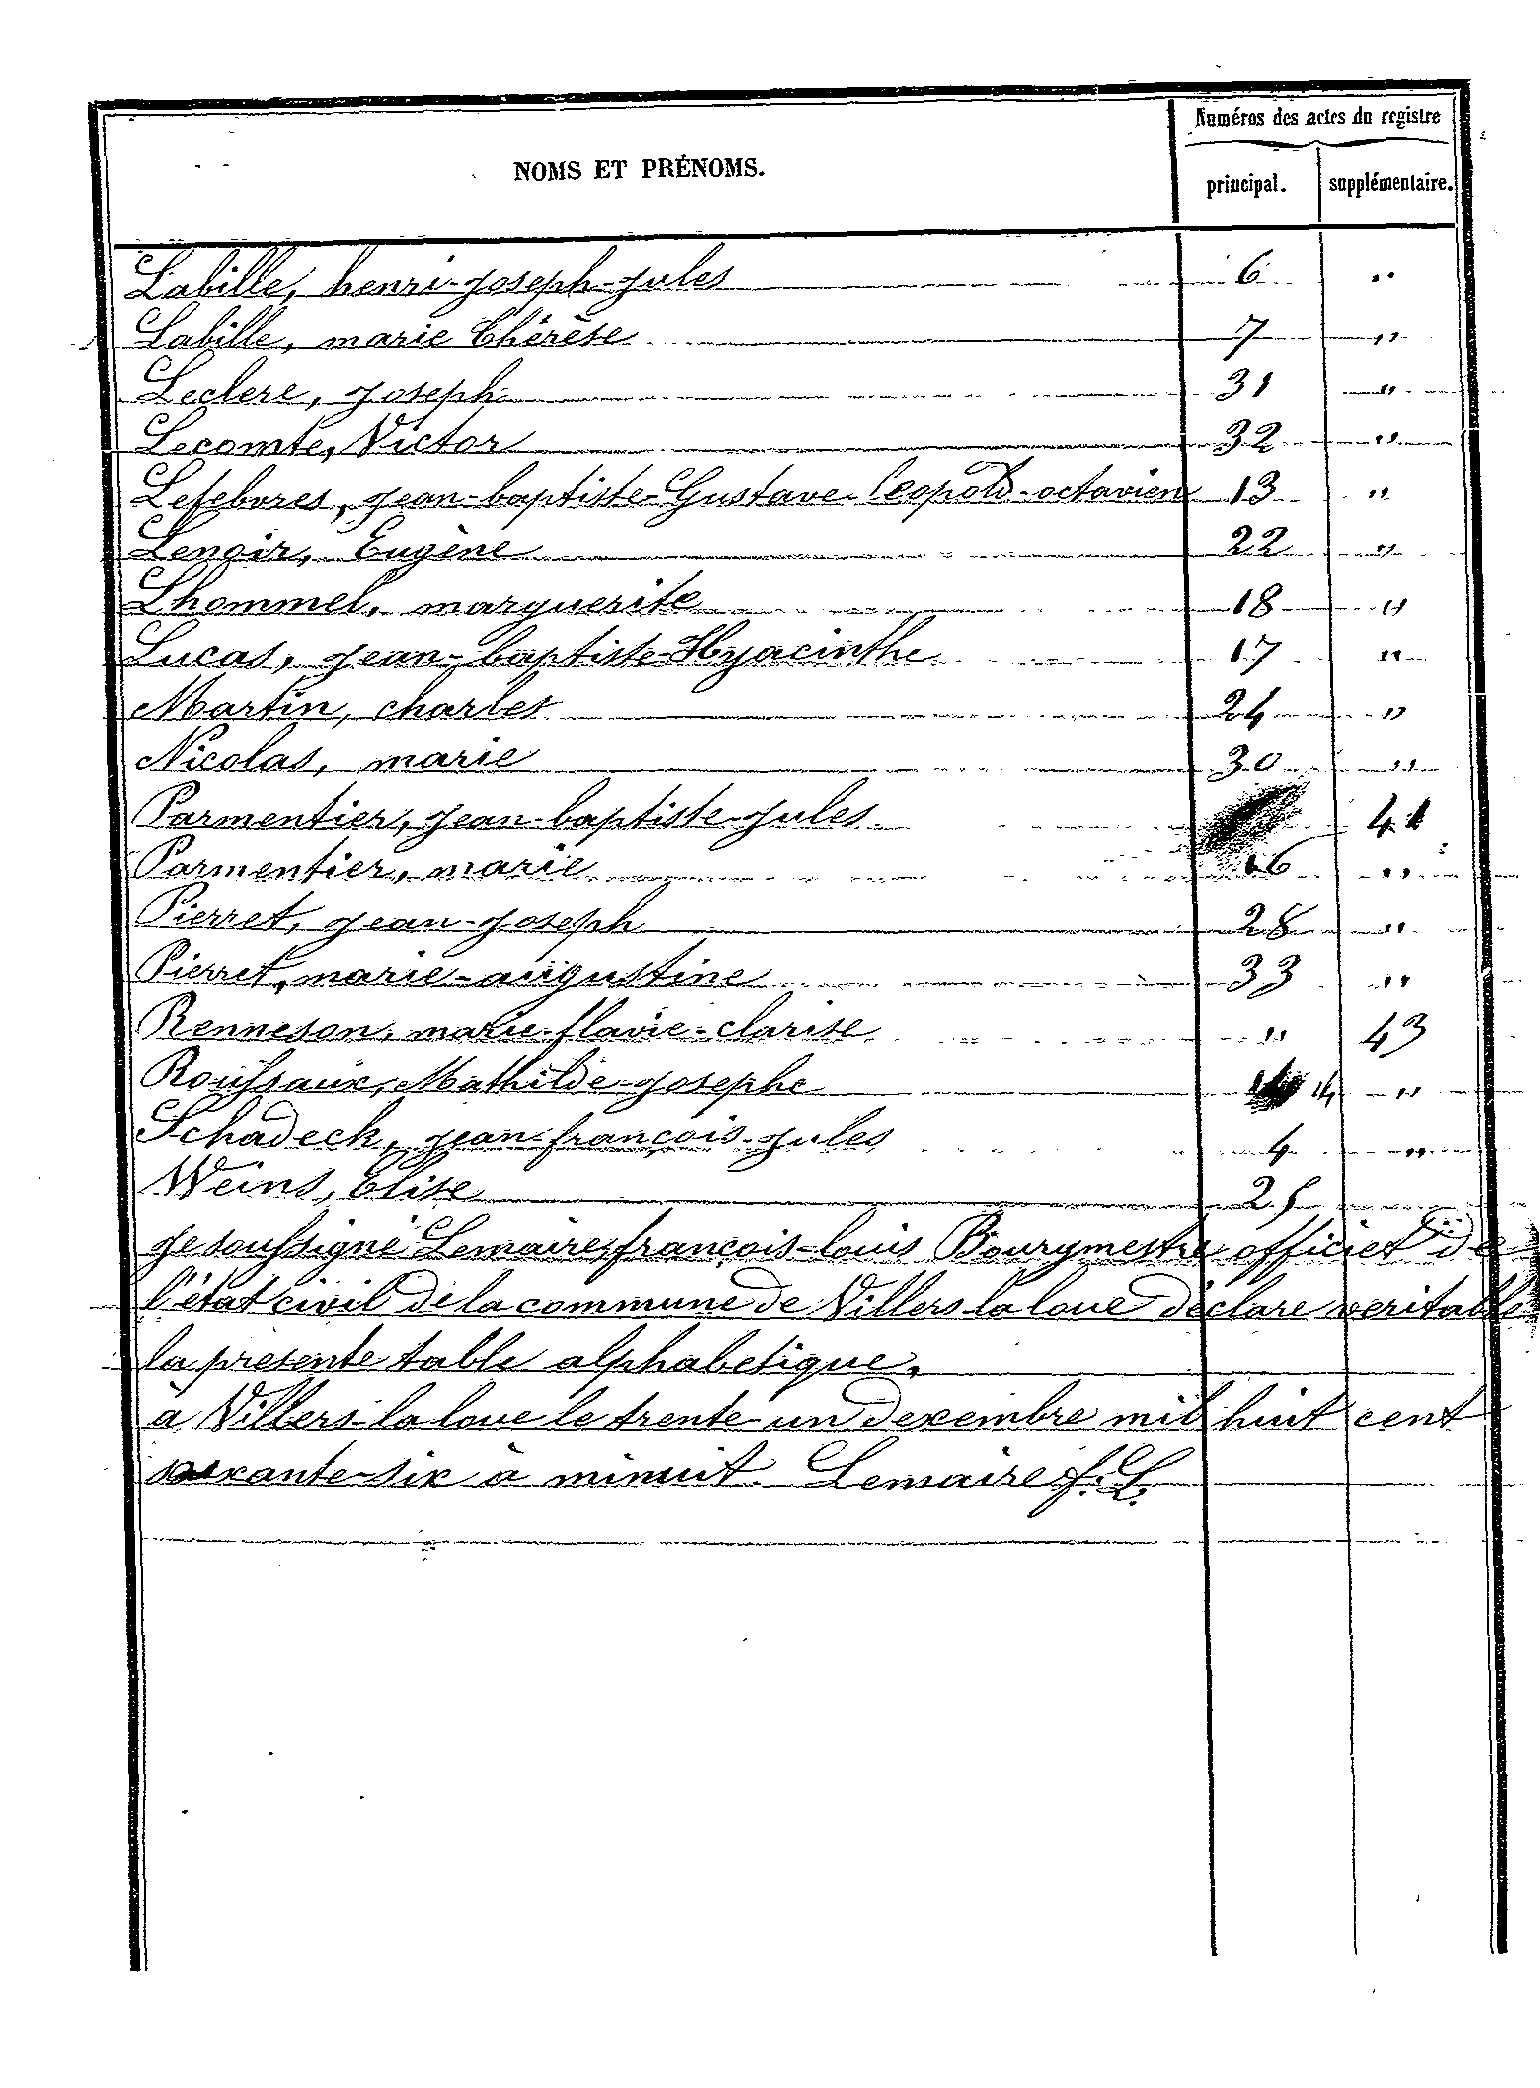 Numéros des actes du registre
NOMS ET PRÉNOMS.
principal. supplémentaire.
Labille, henri-joseph-jules 6 "
Labille, marie Thérèse 7 "
Leclere, joseph 31 "
Lecomte, Victor 32 "
Lefebvres, jean-baptiste-Gustave-leopold-octavien 13 "
Lenoir, Eugène 22 "
Lhommel, marguerite 18 "
Lucas, jean-baptiste-Hyacinthe 17 "
Martin, charles 24 "
Nicolas, marie 30 "
Parmentier, jean-baptiste-jules 41
Parmentier, marie 16 "
Pierret, jean-joseph 28 "
Pierret, marie-augustine 33 "
Renneson, marie-flavie-clarise " 43
Roussaux, Mathilde-josephe 14 "
Schadeck, jean-françois-jules 4 "
Weins, Elise 25
je soussigné Lemaire françois-louis Bourgmestre officier de
l'état civil de la commune de Villers-la-loue déclare veritable
la presente table alphabetique,
à Villers-la-loue le trente-un decembre mil huit cent
soixante-six à minuit. Lemaire f. L.